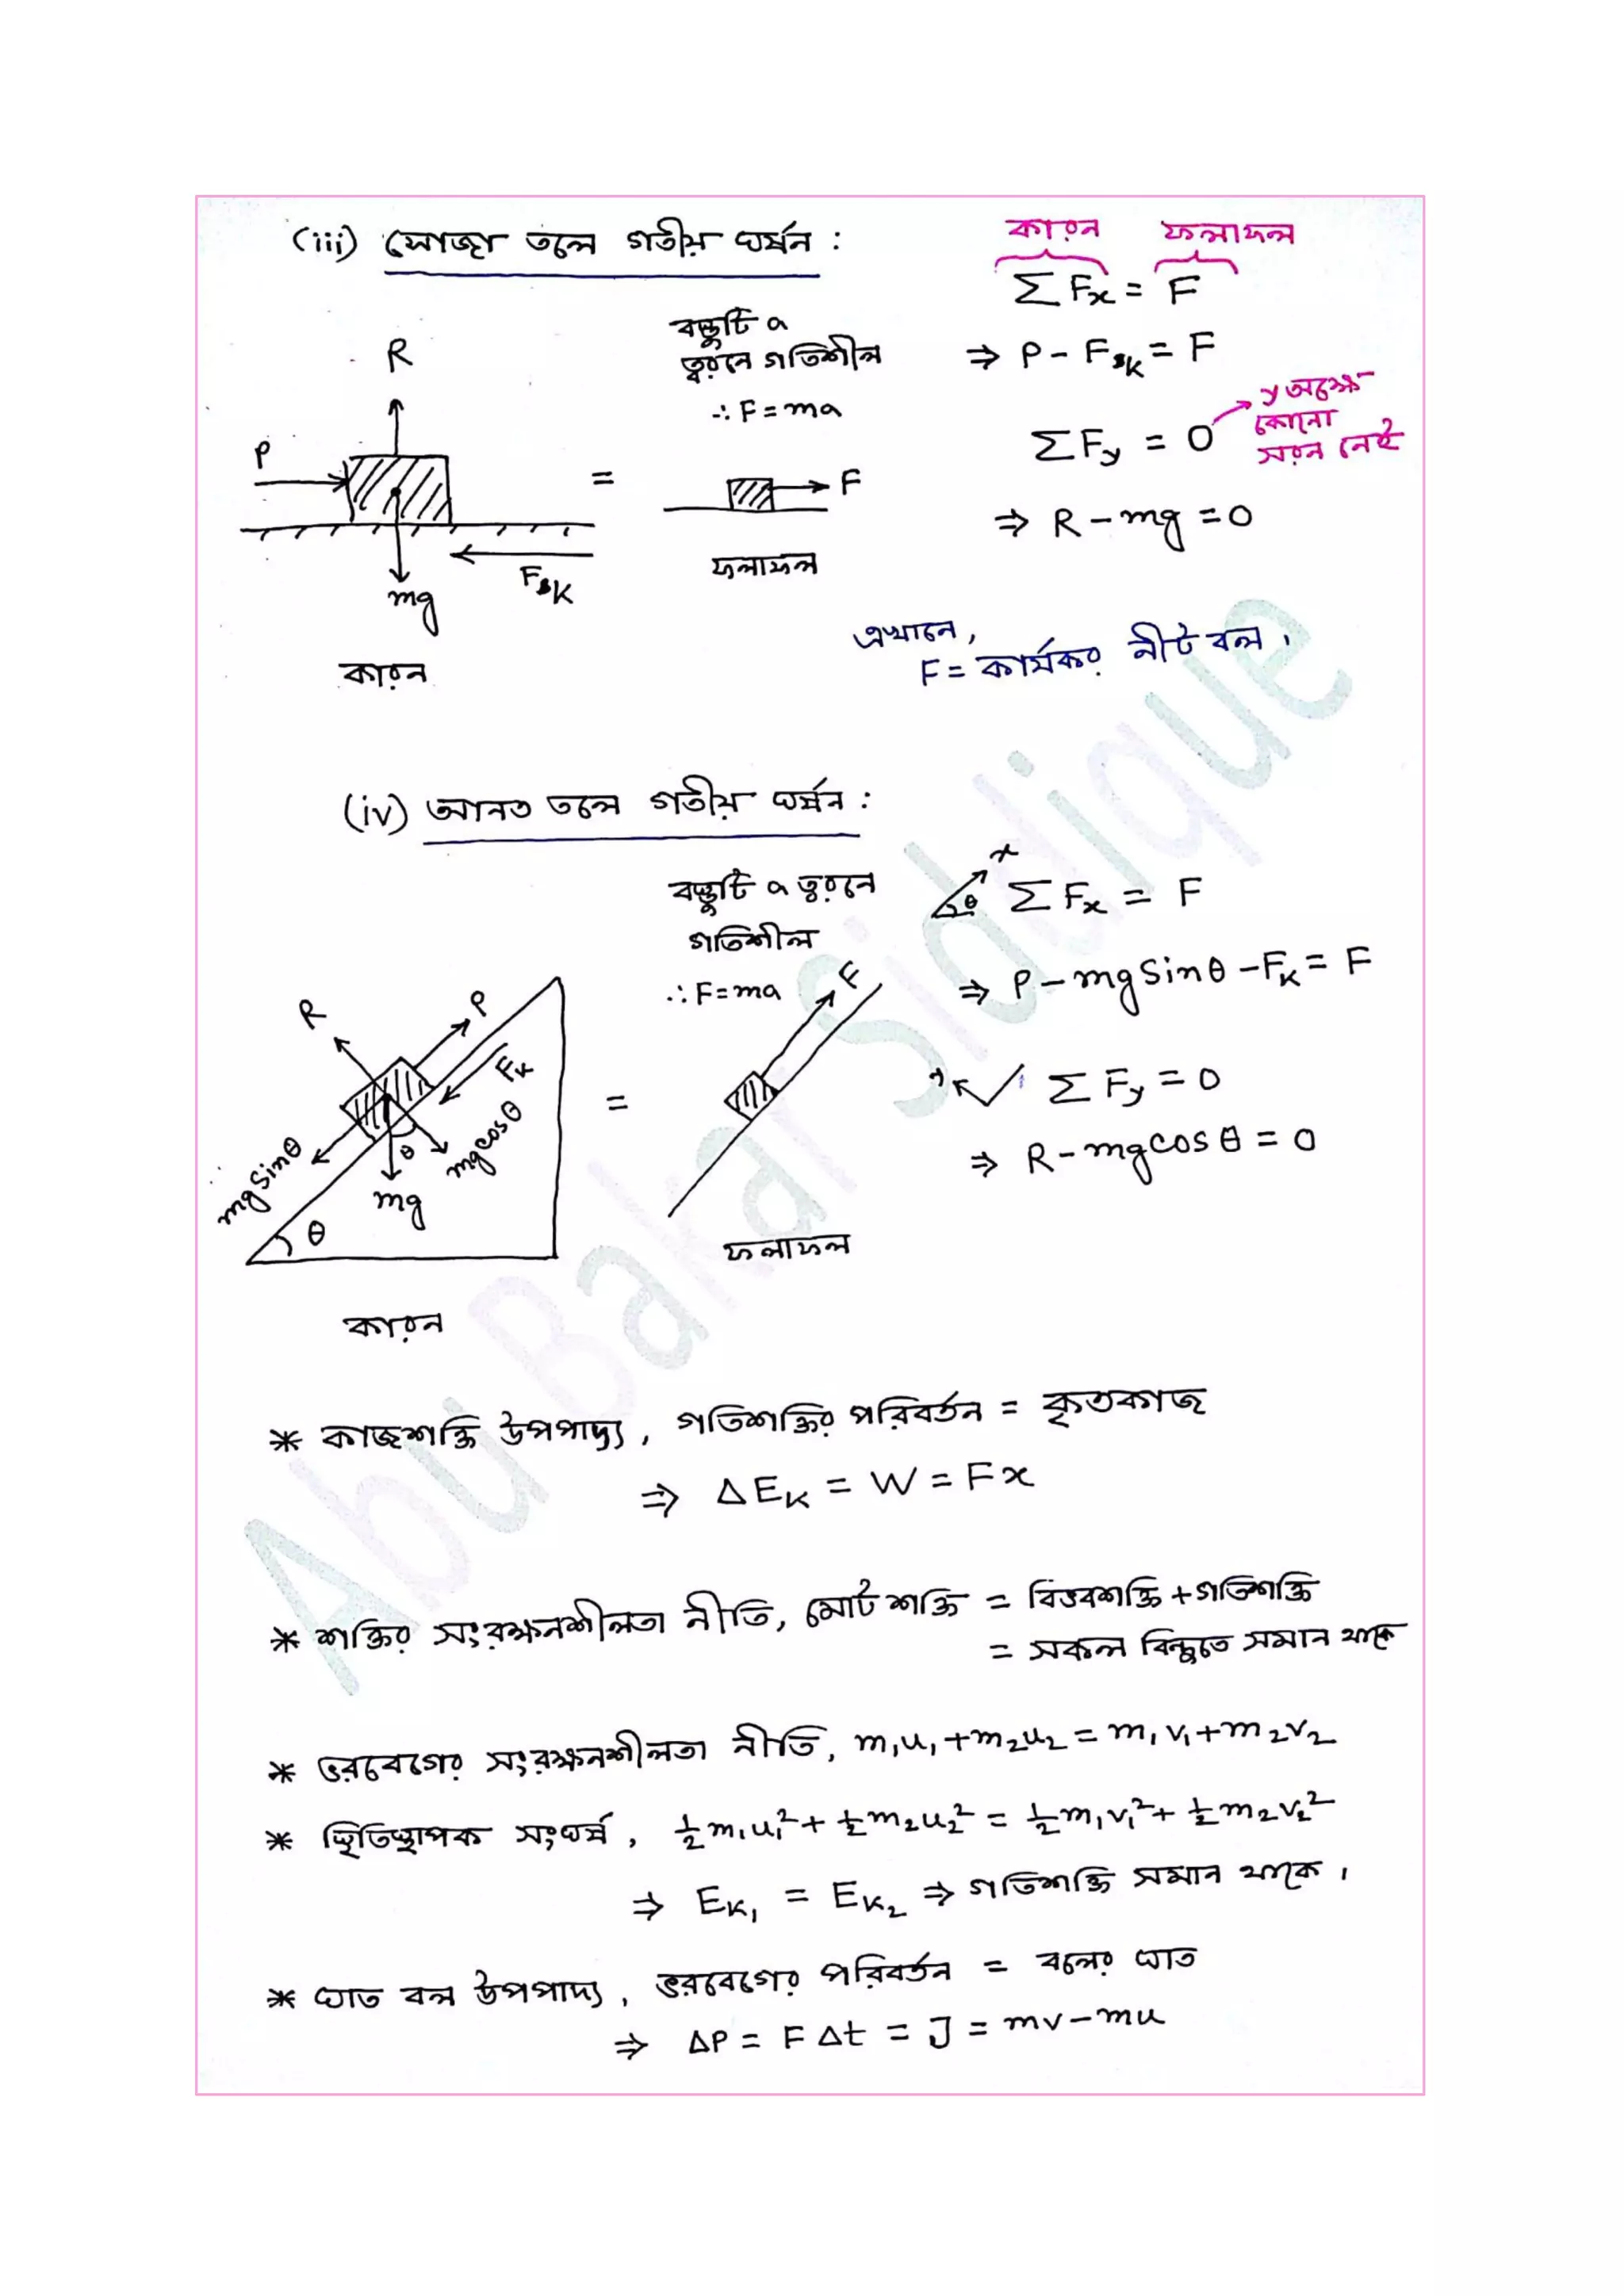 (iii) সোজা তলে গতীয় ঘর্ষন :
কারন ফলাফল
∑Fx = F
বস্তুটি a
ত্বরনে গতিশীল
∴ F = ma
⇒ P - Fsk = F
∑Fy = 0
y অক্ষে
কোনো
সরন নেই
⇒ R - mg = 0
R
P
=
F
mg
Fsk
ফলাফল
কারন
এখানে,
F = কার্যকর নীট বল।
(iv) আনত তলে গতীয় ঘর্ষন :
বস্তুটি a ত্বরনে
গতিশীল
∴ F = ma
x
θ
∑Fx = F
⇒ P - mg sinθ - Fk = F
y
∑Fy = 0
⇒ R - mg cosθ = 0
R
P
Fk
mg sinθ
θ
mg cosθ
mg
θ
=
F
ফলাফল
কারন
* কাজশক্তি উপপাদ্য, গতিশক্তির পরিবর্তন = কৃতকাজ
⇒ ΔEK = W = Fx
* শক্তির সংরক্ষনশীলতা নীতি, মোট শক্তি = বিভবশক্তি + গতিশক্তি
= সকল বিন্দুতে সমান থাকে
* ভরবেগের সংরক্ষনশীলতা নীতি, m₁u₁ + m₂u₂ = m₁v₁ + m₂v₂
* স্থিতিস্থাপক সংঘর্ষ, ½m₁u₁² + ½m₂u₂² = ½m₁v₁² + ½m₂v₂²
⇒ EK₁ = EK₂ ⇒ গতিশক্তি সমান থাকে।
* ঘাত বল উপপাদ্য, ভরবেগের পরিবর্তন = বলের ঘাত
⇒ ΔP = FΔt = J = mv - mu
Abu Bakar Siddique